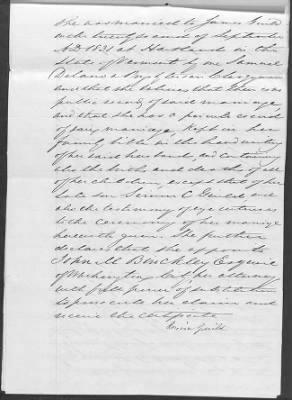 She was married to James Guild
on the twenty second of September
A.D. 1831 at Hartland in the
State of Vermont by one Samuel
Delano a Presbyterian Clergyman
and that she believes that there is no
public record of said marriage
and that she has a private record
of said marriage, kept in her
family bible in the hand writing
of her said husband, and containing
also the births and deaths of all
of her children, except that of her
late son C Guild and
also the testimony of eye witnesses
to the ceremony of her marriage
herewith given. She further
declares that she appoints
John M Binckley Esquire
of Washington City her attorney
with full power of substitution
to prosecute her claim and
receive the certificate
Guild